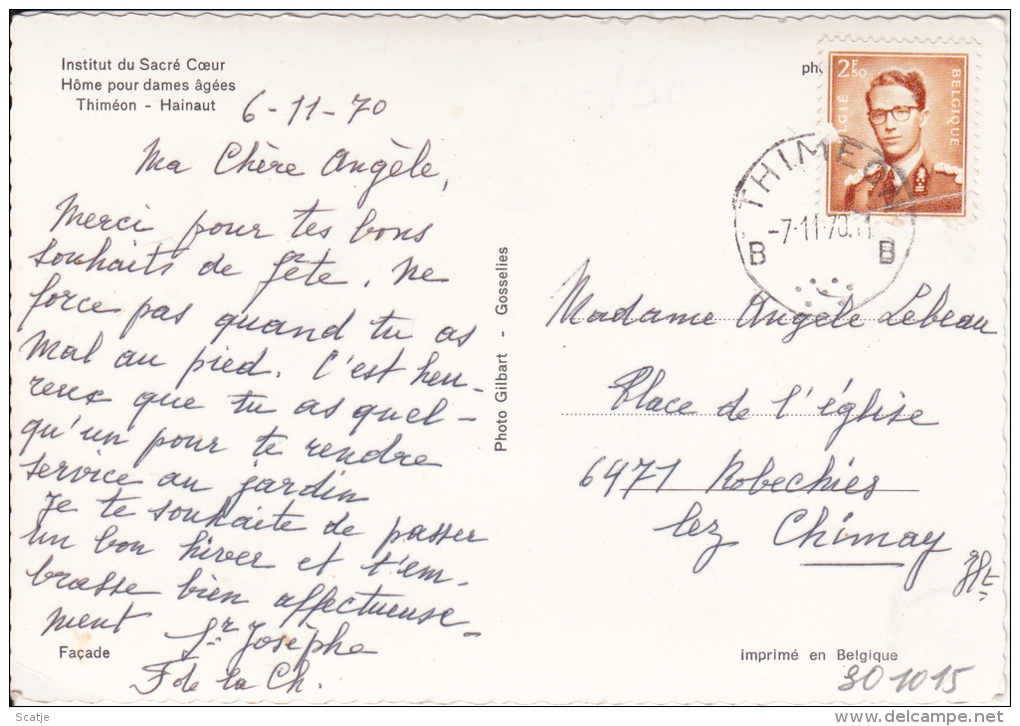 Institut du Sacré Cœur
Hôme pour dames âgées
Thiméon - Hainaut
6-11-70
Ma Chère Angèle,
Merci pour tes bons
souhaits de fête. Ne
force pas quand tu as
mal au pied. C'est heu-
reux que tu as quel-
qu'un pour te rendre
service au jardin
Je te souhaite de passer
un bon hiver et t'em-
brasse bien affectueuse-
ment Sr Josèphe
F de la Ch.
Façade
Photo Gilbart - Gosselies
pho
2F50
BELGIË BELGIQUE
THIMEON
-7-11-70.11
B B
Madame Angèle Lebeau
Place de l'église
6471 Robechies
lez Chimay
imprimé en Belgique
301015
Scatje
www.delcampe.net